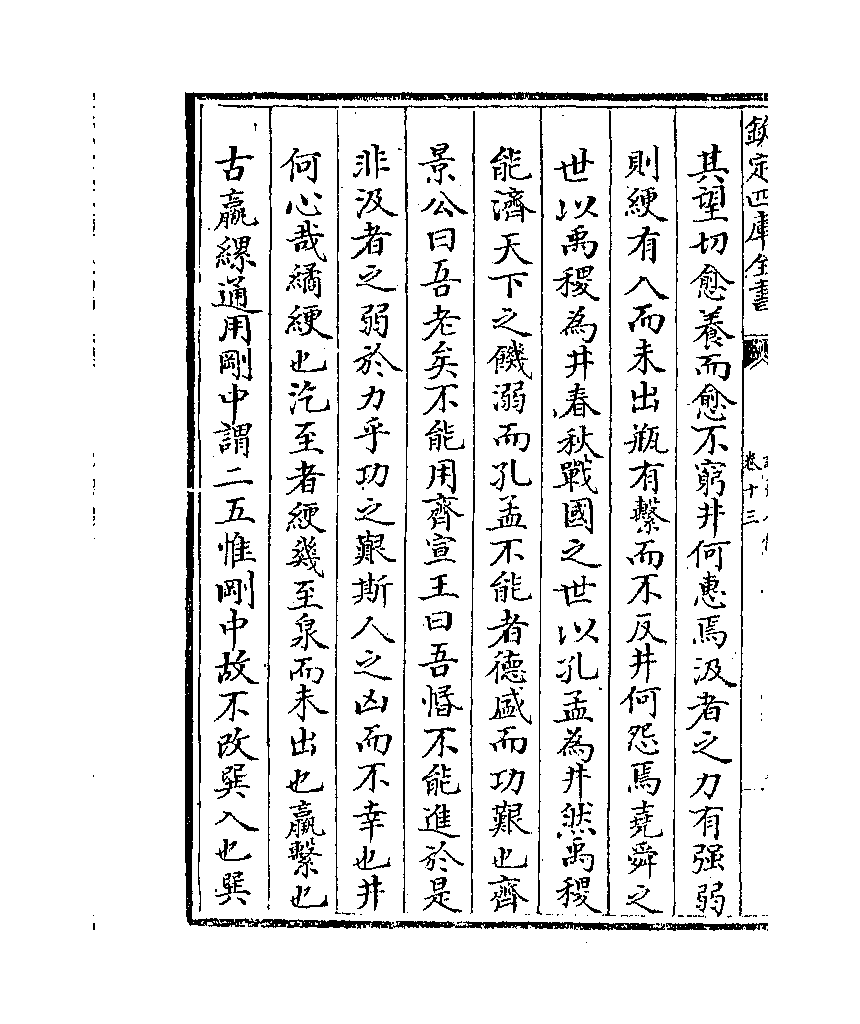 欽定四庫全書
卷十三
其望切愈養而愈不窮井何惠焉汲者之力有强弱
則綆有入而未出瓶有繫而不反井何怨焉堯舜之
世以禹稷為井春秋戰國之世以孔孟為井然禹稷
能濟天下之饑溺而孔孟不能者德盛而功艱也齊
景公曰吾老矣不能用齊宣王曰吾惛不能進於是
非汲者之弱於力乎功之艱斯人之凶而不幸也井
何心哉繘綆也汔至者綆幾至泉而未出也羸繫也
古羸縲通用剛中謂二五惟剛中故不改巽入也巽